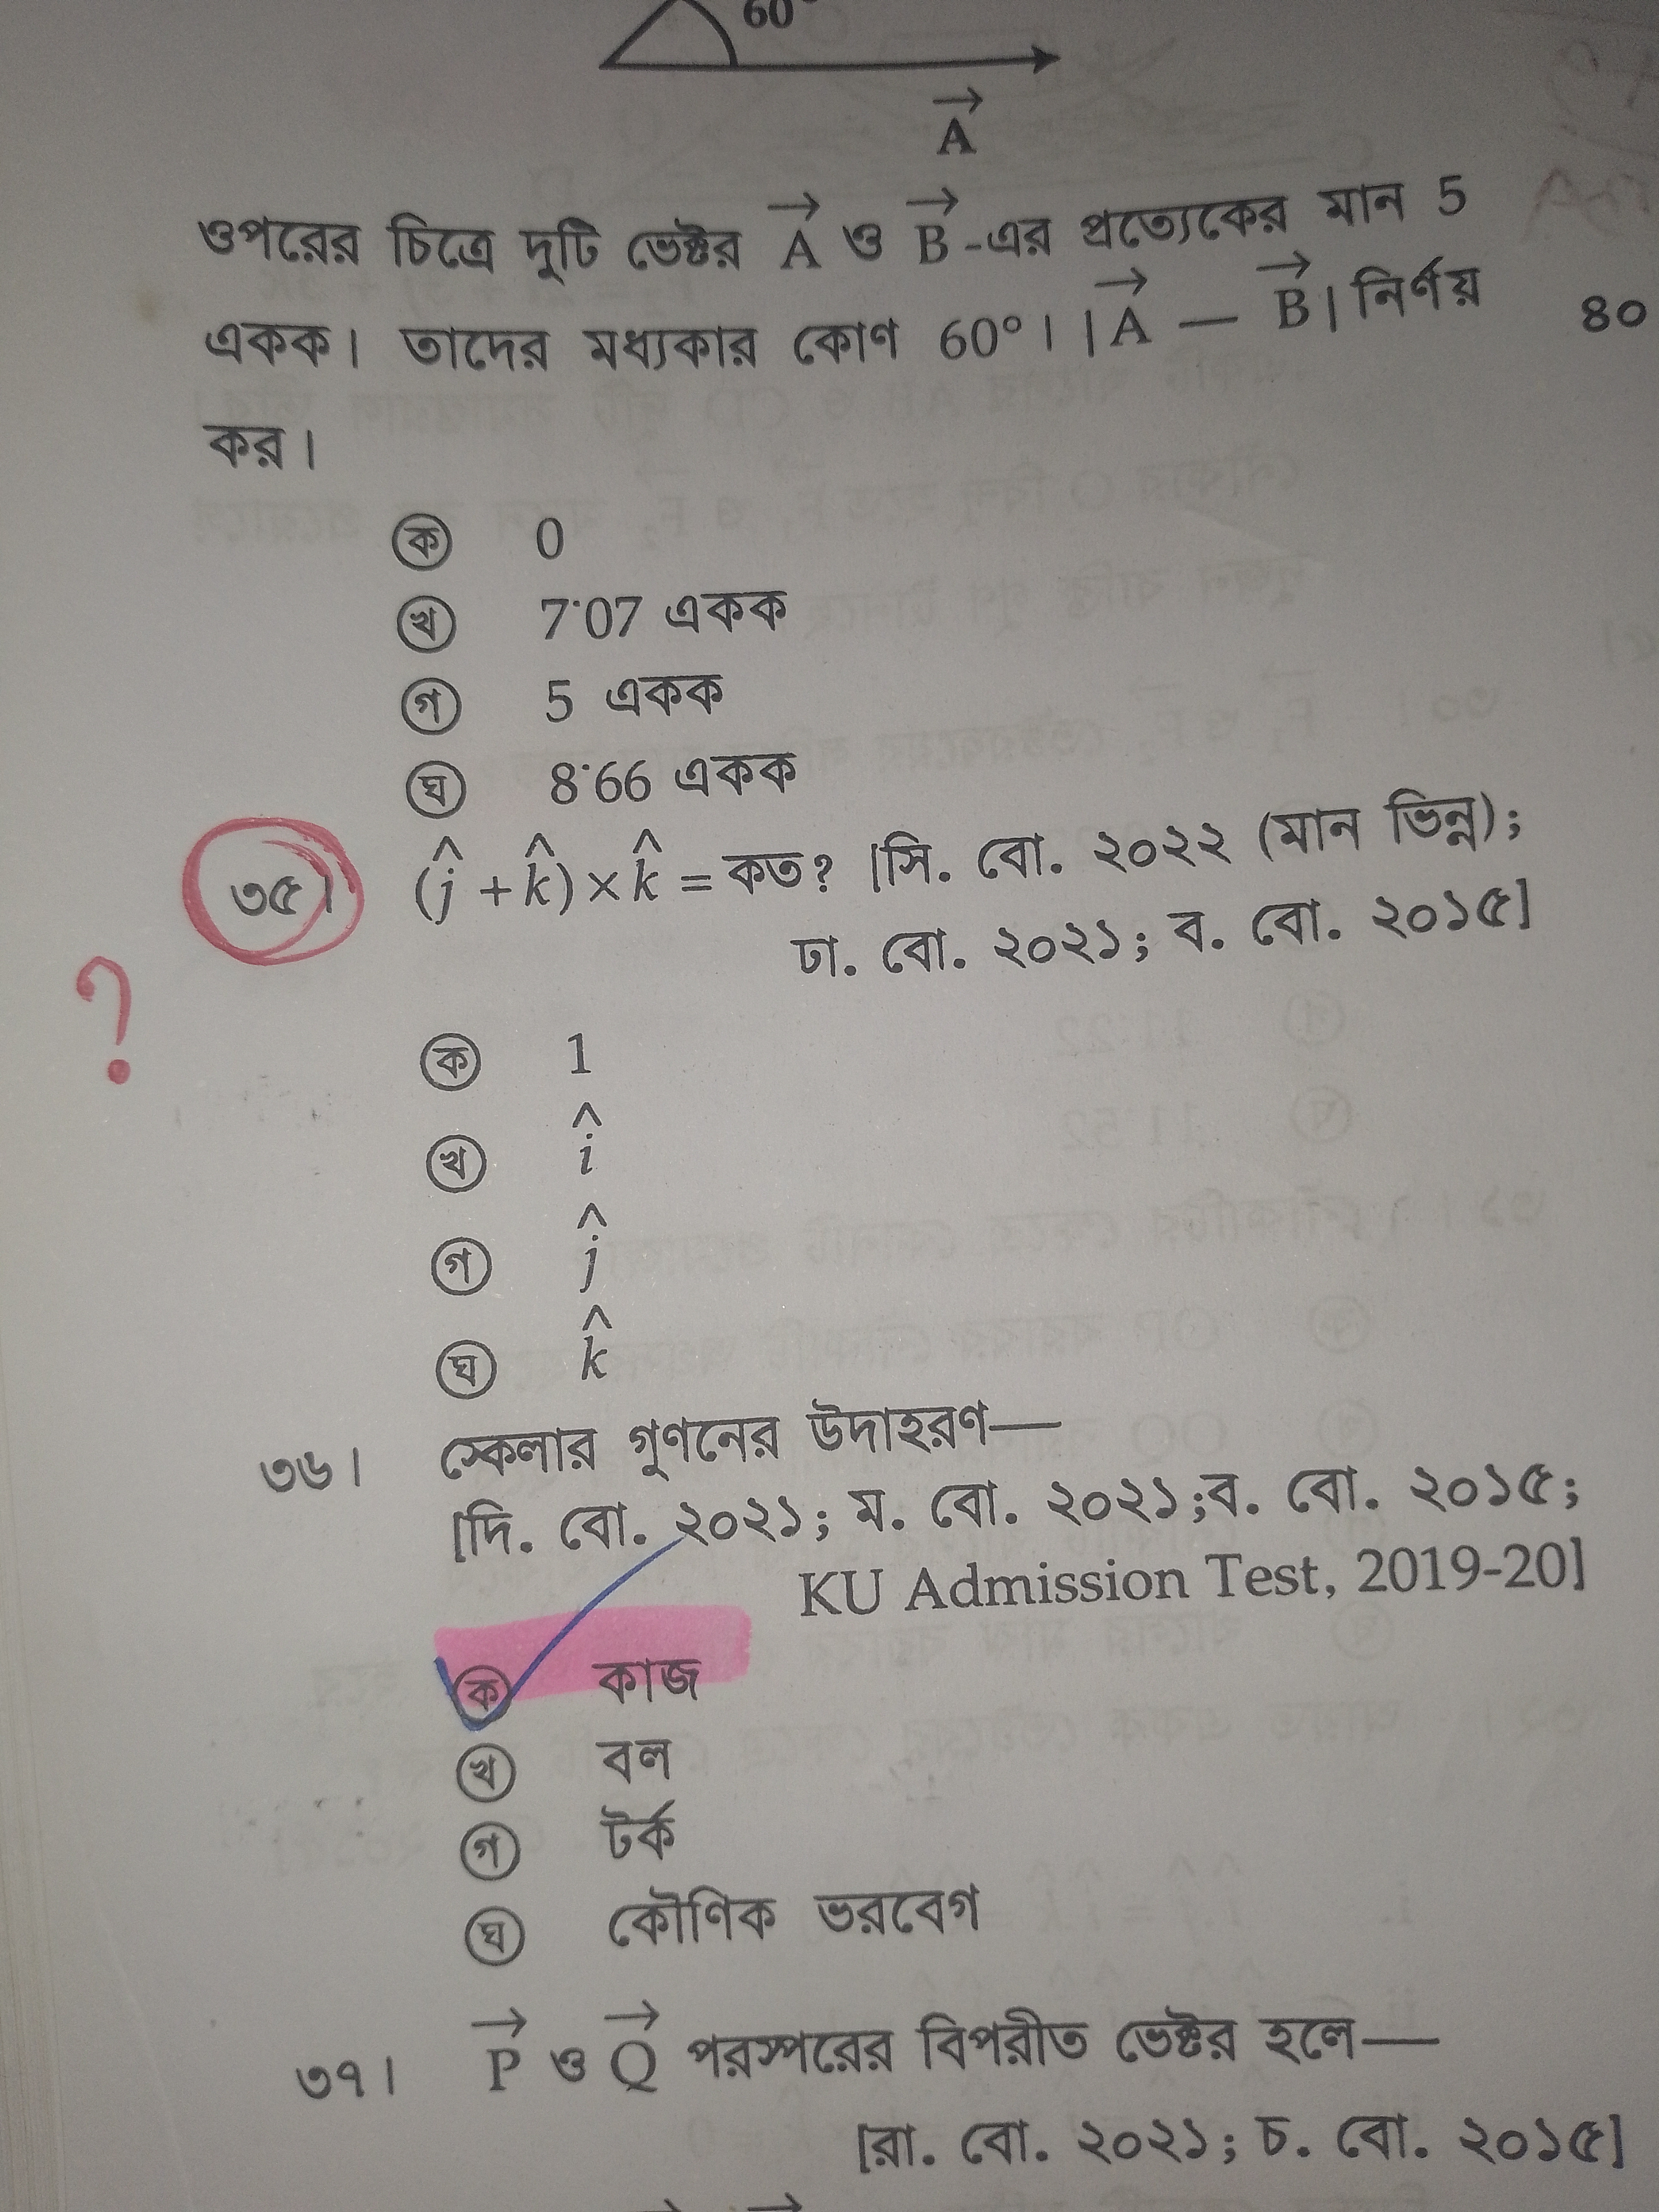 60°
A
ওপরের চিত্রে দুটি ভেক্টর A ও B-এর প্রত্যেকের মান 5
একক। তাদের মধ্যকার কোণ 60°। |A — B| নির্ণয়
কর।
৪০
ক 0
খ 7·07 একক
গ 5 একক
ঘ 8·66 একক
৩৫। (ĵ + k̂) × k̂ = কত? [সি. বো. ২০২২ (মান ভিন্ন);
ঢা. বো. ২০২১; ব. বো. ২০১৫]
?
ক 1
খ î
গ ĵ
ঘ k̂
৩৬। স্কেলার গুণনের উদাহরণ—
[দি. বো. ২০২১; ম. বো. ২০২১;ব. বো. ২০১৫;
KU Admission Test, 2019-20]
ক কাজ
খ বল
গ টর্ক
ঘ কৌণিক ভরবেগ
৩৭। P ও Q পরস্পরের বিপরীত ভেক্টর হলে—
[রা. বো. ২০২১; চ. বো. ২০১৫]